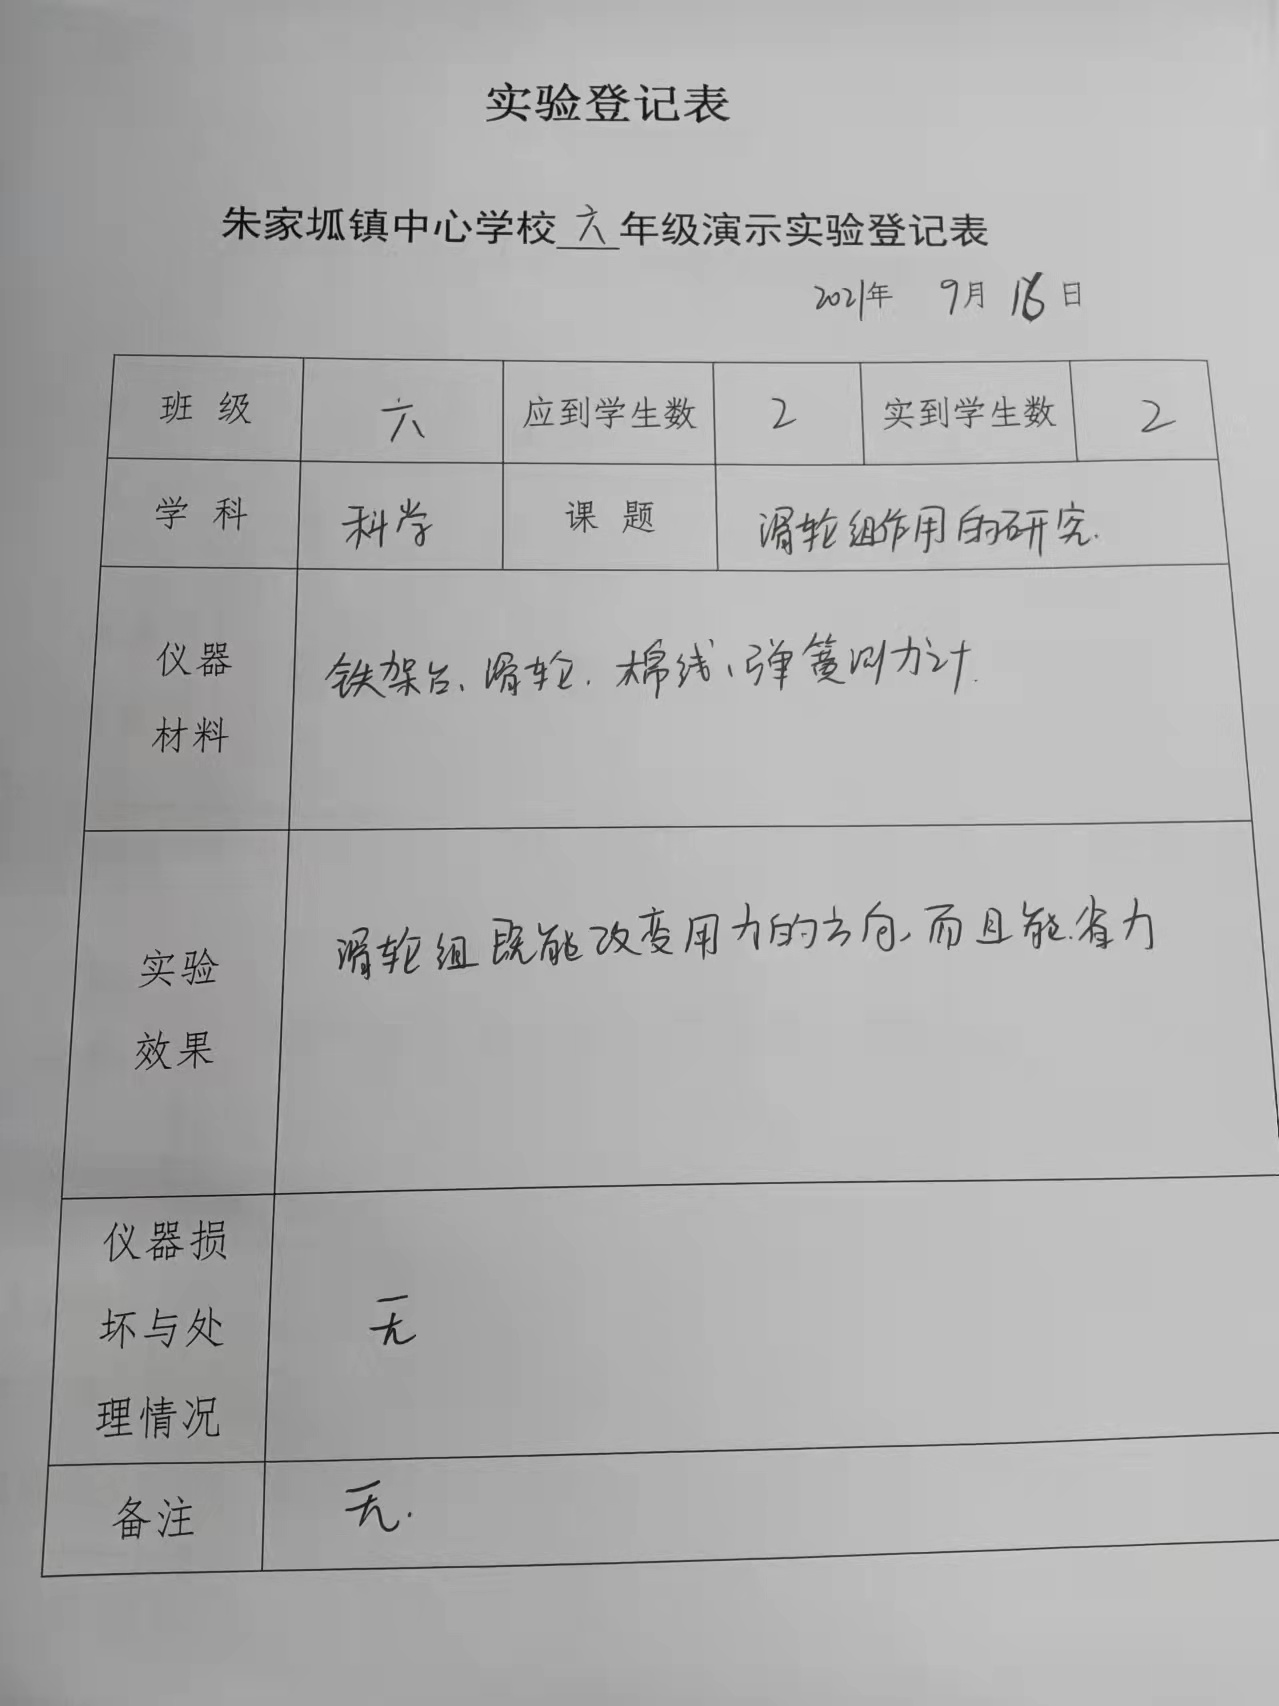 实验登记表
朱家坬镇中心学校六年级演示实验登记表
2021年 9月 16日
班 级 六 应到学生数 2 实到学生数 2
学 科 科学 课 题 滑轮组作用的研究.
仪器
材料
铁架台、滑轮、棉线、弹簧测力计.
实验
效果
滑轮组既能改变用力的方向,而且能省力
仪器损
坏与处
理情况
无
备注 无.